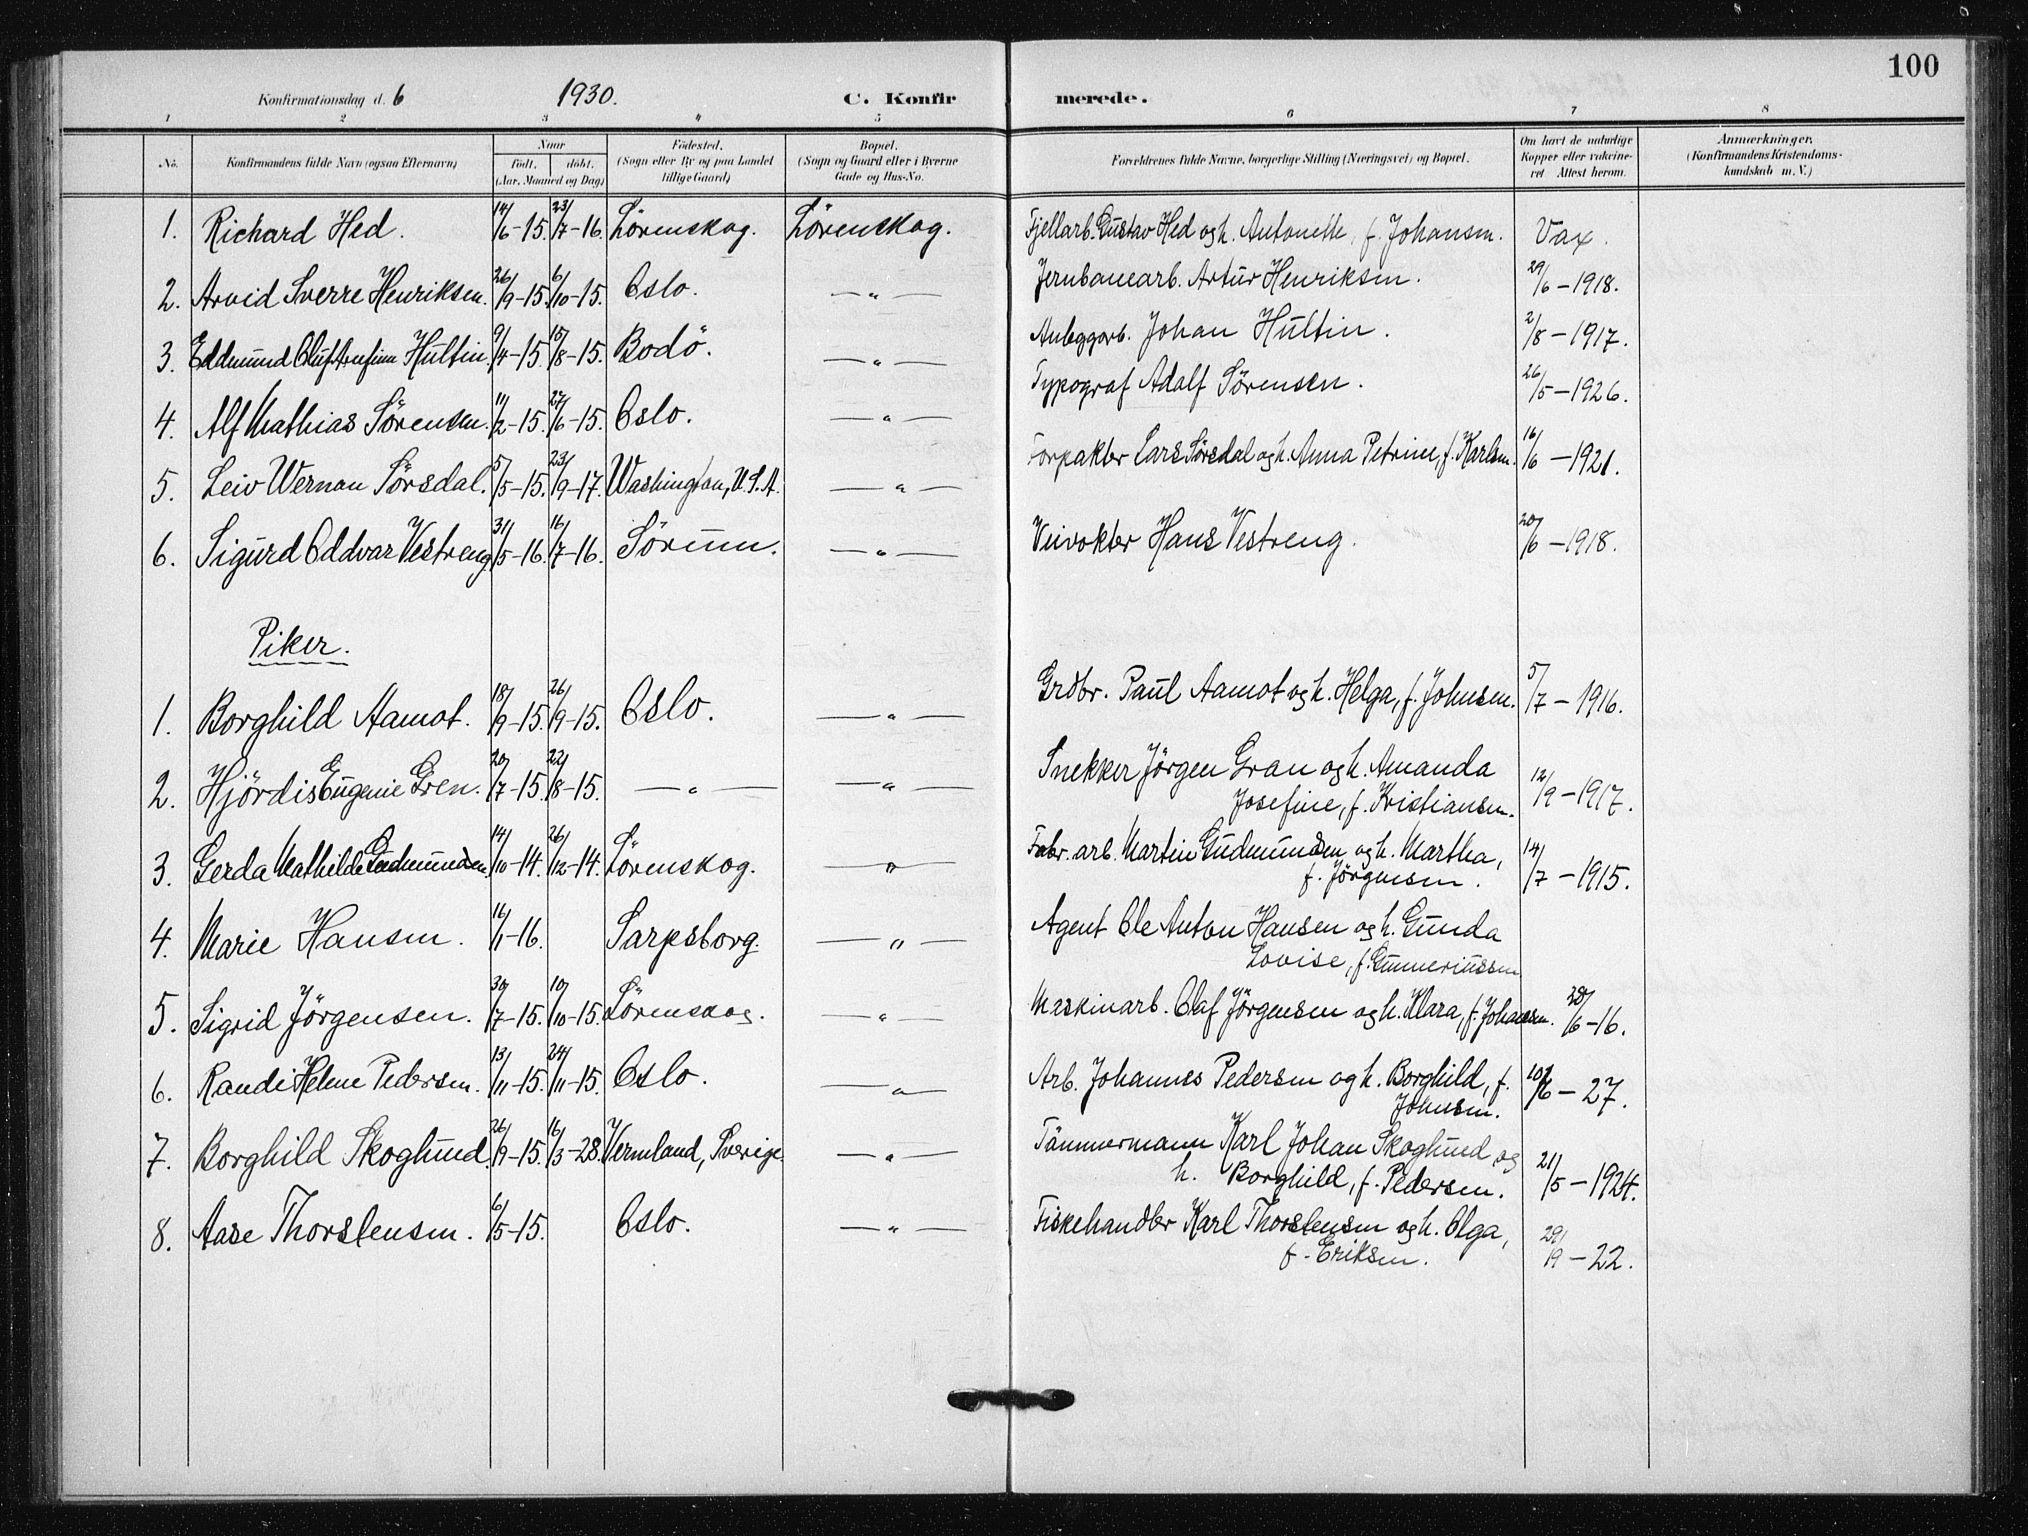 100
Konfirmationsdag d. 6 1930. C. Konfirmerede.
1 2 3 4 5 6 7 8
No. Konfirmandens fulde Navn (ogsaa Efternavn) Naar født. døbt. (Aar, Maaned og Dag) Fødested. (Sogn eller By og paa Landet tillige Gaard) Bopæl. (Sogn og Gaard eller i Byerne Gade og Hus-No. Forældrenes fulde Navne, borgerlige Stilling (Næringsvei) og Bopæl. Om havt de naturlige Kopper eller vakcineret Attest herom. Anmærkninger. (Konfirmandens Kristendomskundskab m. V.)
1. Richard Hed. 14/6-15. 23/7-16. Lörenskog. Lörenskog. Fjellarb. Gustav Hed og h. Antonette, f. Johansen. Vax.
2. Arvid Sverre Henriksen. 26/9-15. 6/10-15. Oslo. —"— Jernbanearb. Artur Henriksen. 29/6-1918.
3. Eddmund Oluf Hultin. 9/4-15. 15/8-15. Bodö. —"— Anleggarb. Johan Hultin. 2/8-1917.
4. Alf Mathias Sörensen. 11/2-15. 27/6-15. Oslo. —"— Typograf Adolf Sörensen. 26/5-1926.
5. Leiv Wernau Sörsdal. 5/5-15. 23/9-17. Washington, U.S.A. —"— Forpakter Lars Sörsdal og h. Anna Petrine, f. Karlsen. 16/6-1921.
6. Sigurd Oddvar Vestreng 31/5-16. 16/7-16. Sörum. —"— Veivokter Hans Vestreng. 20/6-1918.
Piker.
1. Borghild Aamot. 18/9-15. 26/9-15. Oslo. —"— Grdbr. Paul Aamot og h. Helga, f. Johnsen. 5/7-1916.
2. Hjördis Eugenie Gren. 20/7-15. 22/8-15. —"— —"— Snekker Jörgen Gran og h. Amanda
Josefine, f. Kristiansen. 12/9-1917.
3. Gerda Mathilde Gudmundsen. 14/10-14. 26/12-14. Lörenskog. —"— Fabr. arb. Martin Gudmundsen og h. Martha,
f. Jörgensen. 14/7-1915.
4. Marie Hansen. 16/11-16. Sarpsborg. —"— Agent Ole Anton Hansen og h. Gunda
Lovise, f. Gunneriussen
5. Sigrid Jörgensen. 30/7-15. 10/10-15. Lörenskog. —"— Maskinarb. Olaf Jörgensen og h. Klara, f. Johansen. 28/6-16.
6. Randi Helene Pedersen. 13/11-15. 24/11-15. Oslo. —"— Arb. Johannes Pedersen og h. Borghild, f.
Johnsen. 10/6-27.
7. Borghild Skoglund. 26/9-15. 16/3-28. Vermland, Sverige. —"— Tömmermann Karl Johan Skoglund og
h. Borghild, f. Pedersen. 21/5-1924.
8. Aase Thorstensen. 6/5-15. Oslo. —"— Fiskehandler Karl Thorstensen og h. Olga,
f. Eriksen. 29/9-22.